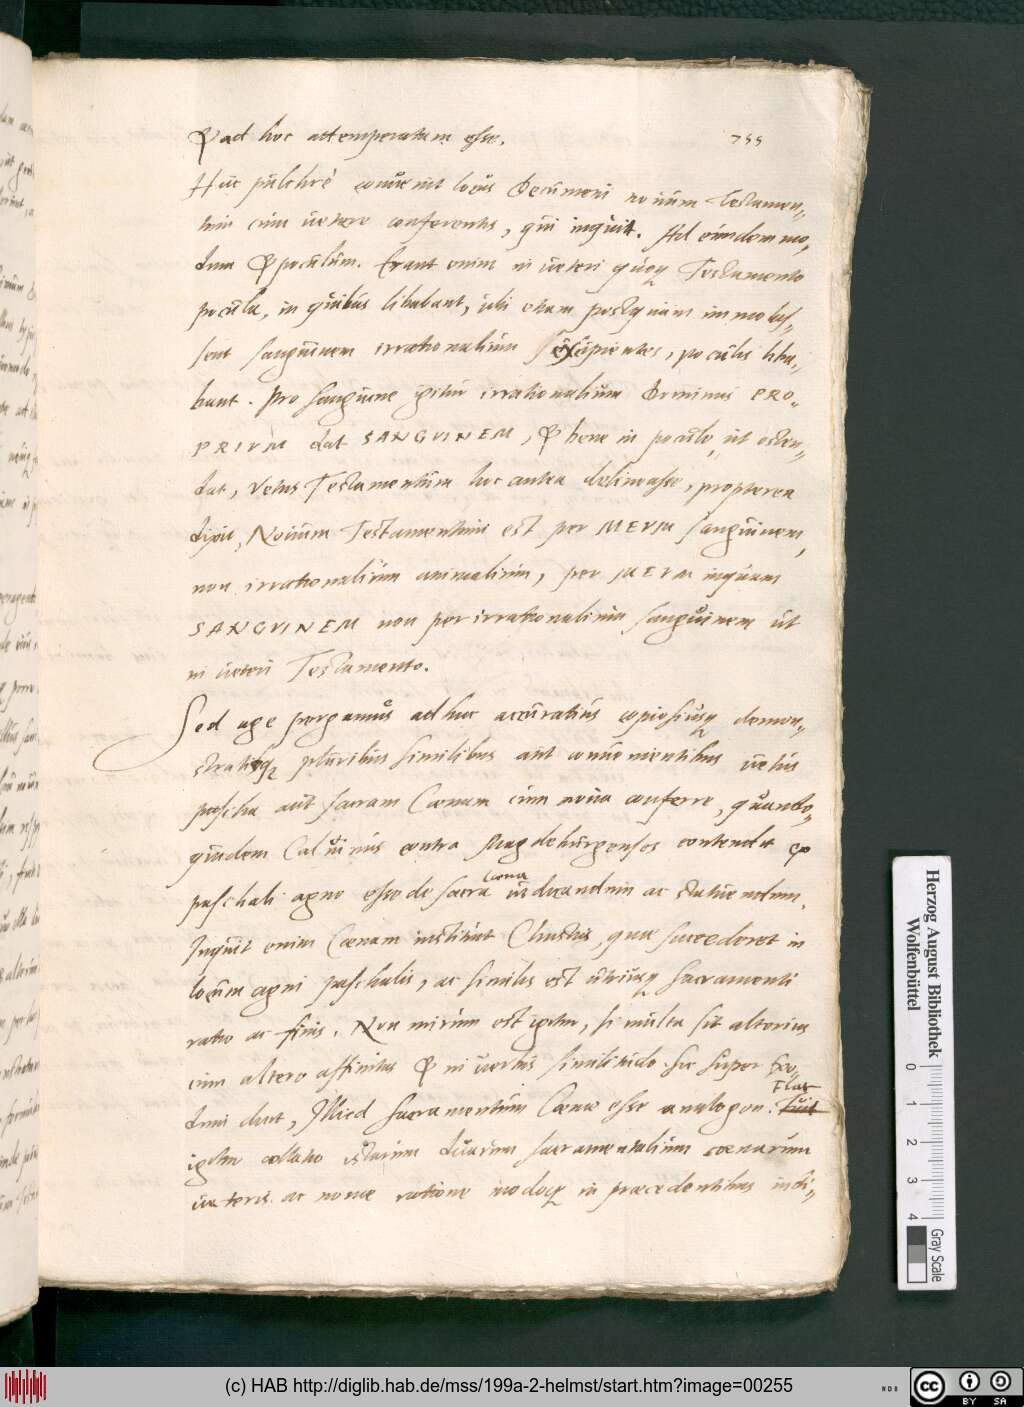 & ad hoc attemperatam esse. 755
Huc pulchrè conuenit locus Oecumenii nouum Testamen„
tum cum uetere conferentis, qui inquit. Ad eundem mo„
dum & poculum. Erant enim in ueteri quoq Testamento
pocula, in quibus libabant, ubi etiam postquam immolas„
sent sanguinem irrationalium excipientes, poculis liba„
bant. Pro sanguine igitur irrationalium Dominus PRO„
PRIVM dat SANGVINEM, & bene in poculo, ut osten„
dat, Vetus Testamentum hoc antea delineasse, propterea
dixit, Nouum Testamentum est per MEVM sanguinem,
non irrationalium animalium, per MEVM inquam
SANGVINEM non per irrationalium sanguinem ut
in ueteri Testamento.
Sed age pergamus adhuc accuratius copiosiusq demon„
pluribus similibus aut conuenientibus uetus
pascha aut sacram Coenam cum noua conferre, quando„
quidem Caluinus contra Magdeburgenses contendit ex
paschali agno esse de sacra Coena iudicandum ac statuendum.
Inquit enim Coenam instituit Christus, quae succederet in
locum agni paschalis, ac similis est utriusq sacramenti
ratio ac finis. Non mirum est igitur, si multa sit alterius
cum altero affinitas & in uerbis similitudo. sic super Exo„
dum dicit, Illud sacramentum Coenae esse analogon. Fiat
igitur collatio istarum duarum sacramentalium coenarum
ueteris ac nouae ratione modoq in praecedentibus indi„
Herzog August Bibliothek
Wolfenbüttel
0 1 2 3 4
Gray Scale
(c) HAB http://diglib.hab.de/mss/199a-2-helmst/start.htm?image=00255
CC BY SA